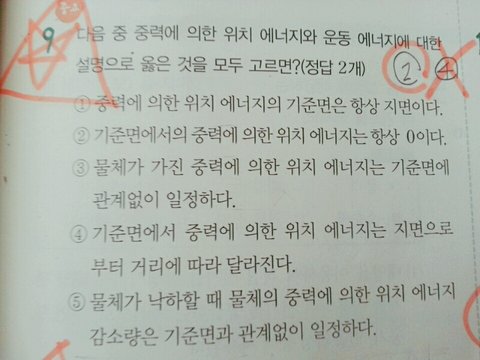 중요
9 다음 중 중력에 의한 위치 에너지와 운동 에너지에 대한
설명으로 옳은 것을 모두 고르면?(정답 2개)
② ④
① 중력에 의한 위치 에너지의 기준면은 항상 지면이다.
② 기준면에서의 중력에 의한 위치 에너지는 항상 0이다.
③ 물체가 가진 중력에 의한 위치 에너지는 기준면에
관계없이 일정하다.
④ 기준면에서 중력에 의한 위치 에너지는 지면으로
부터 거리에 따라 달라진다.
⑤ 물체가 낙하할 때 물체의 중력에 의한 위치 에너지
감소량은 기준면과 관계없이 일정하다.